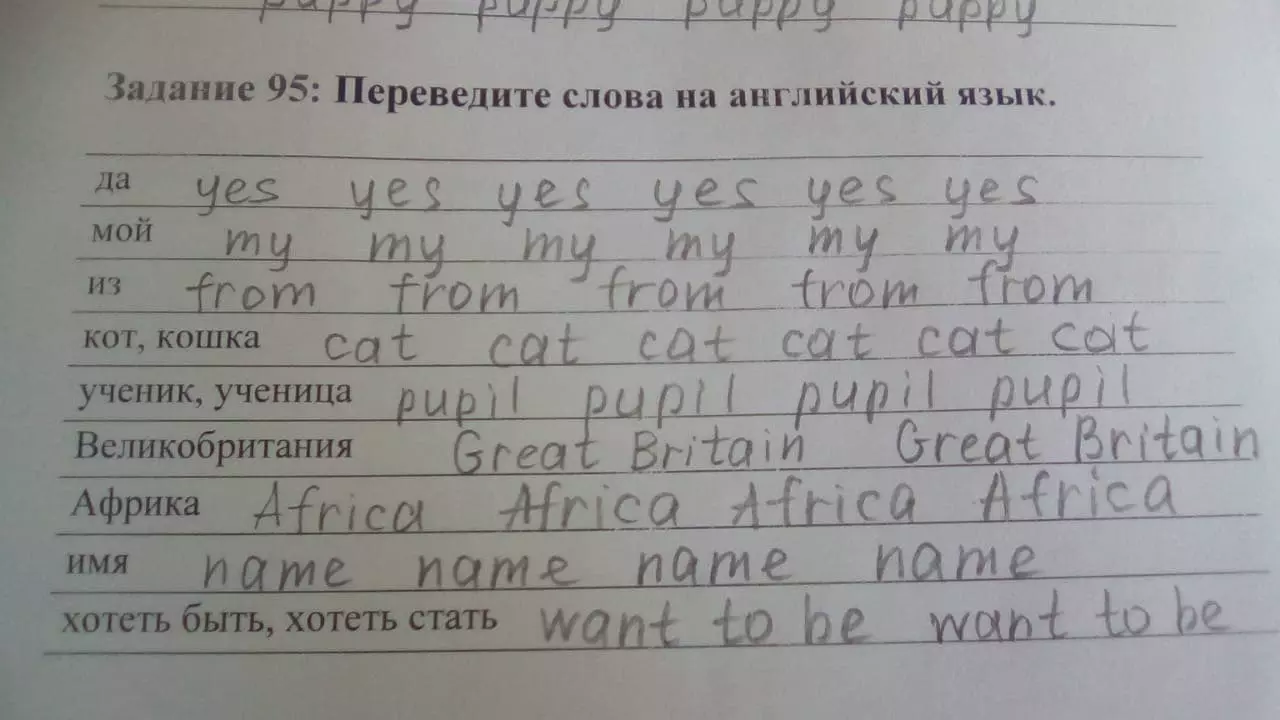 puppy puppy puppy puppy
Задание 95: Переведите слова на английский язык.
да yes yes yes yes yes yes
мой my my my my my my
из from from from from from
кот, кошка cat cat cat cat cat cat
ученик, ученица pupil pupil pupil pupil
Великобритания Great Britain Great Britain
Африка Africa Africa Africa Africa
имя name name name name
хотеть быть, хотеть стать want to be want to be